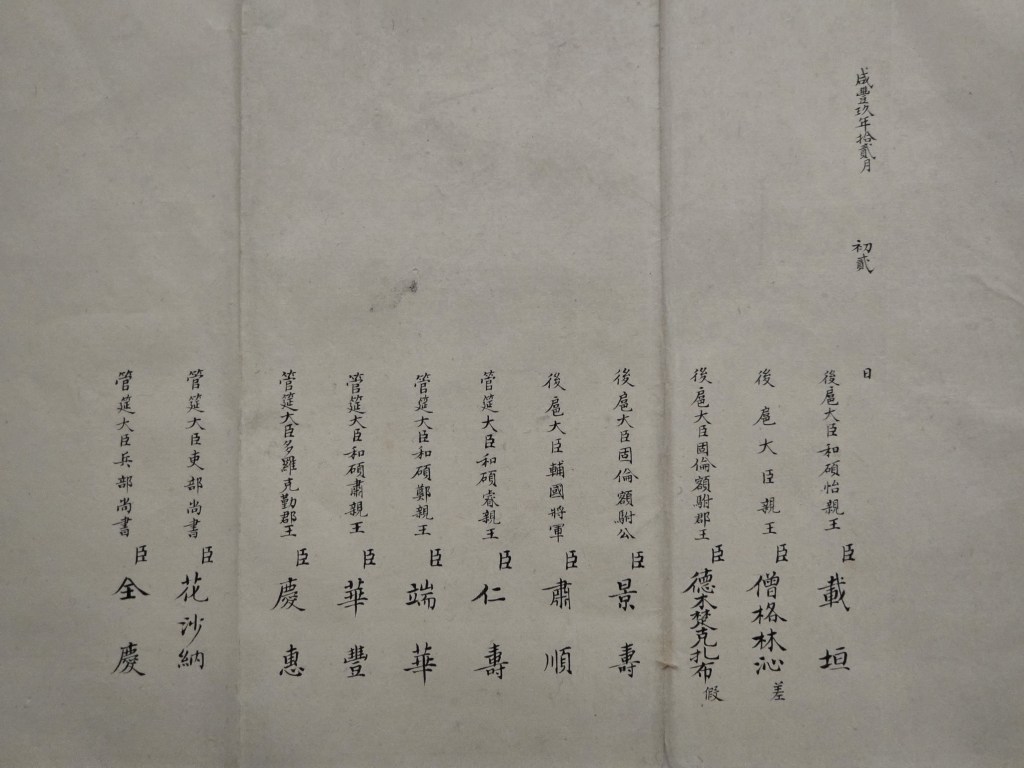 咸豐玖年拾貳月 初貳 日
後扈大臣和碩怡親王臣載垣
後扈大臣親王臣僧格林沁差
後扈大臣固倫額駙郡王臣德木楚克扎布假
後扈大臣固倫額駙公臣景壽
後扈大臣輔國將軍臣肅順
管筵大臣和碩睿親王臣仁壽
管筵大臣和碩鄭親王臣端華
管筵大臣和碩肅親王臣華豐
管筵大臣多羅克勤郡王臣慶惠
管筵大臣吏部尚書臣花沙納
管筵大臣兵部尚書臣全慶